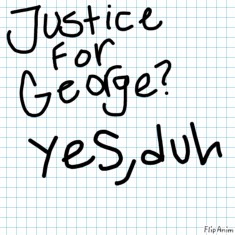 Justice
for
George?
yes, duh
FlipAnim